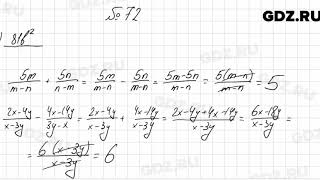 GDZ.RU
№ 72
) 81b²
5m/(m-n) + 5n/(n-m) = 5m/(m-n) - 5n/(m-n) = (5m-5n)/(m-n) = 5(m-n)/(m-n) = 5
(2x-4y)/(x-3y) - (4x-14y)/(3y-x) = (2x-4y)/(x-3y) + (4x-14y)/(x-3y) = (2x-4y+4x-14y)/(x-3y) = (6x-18y)/(x-3y) =
= 6(x-3y)/(x-3y) = 6